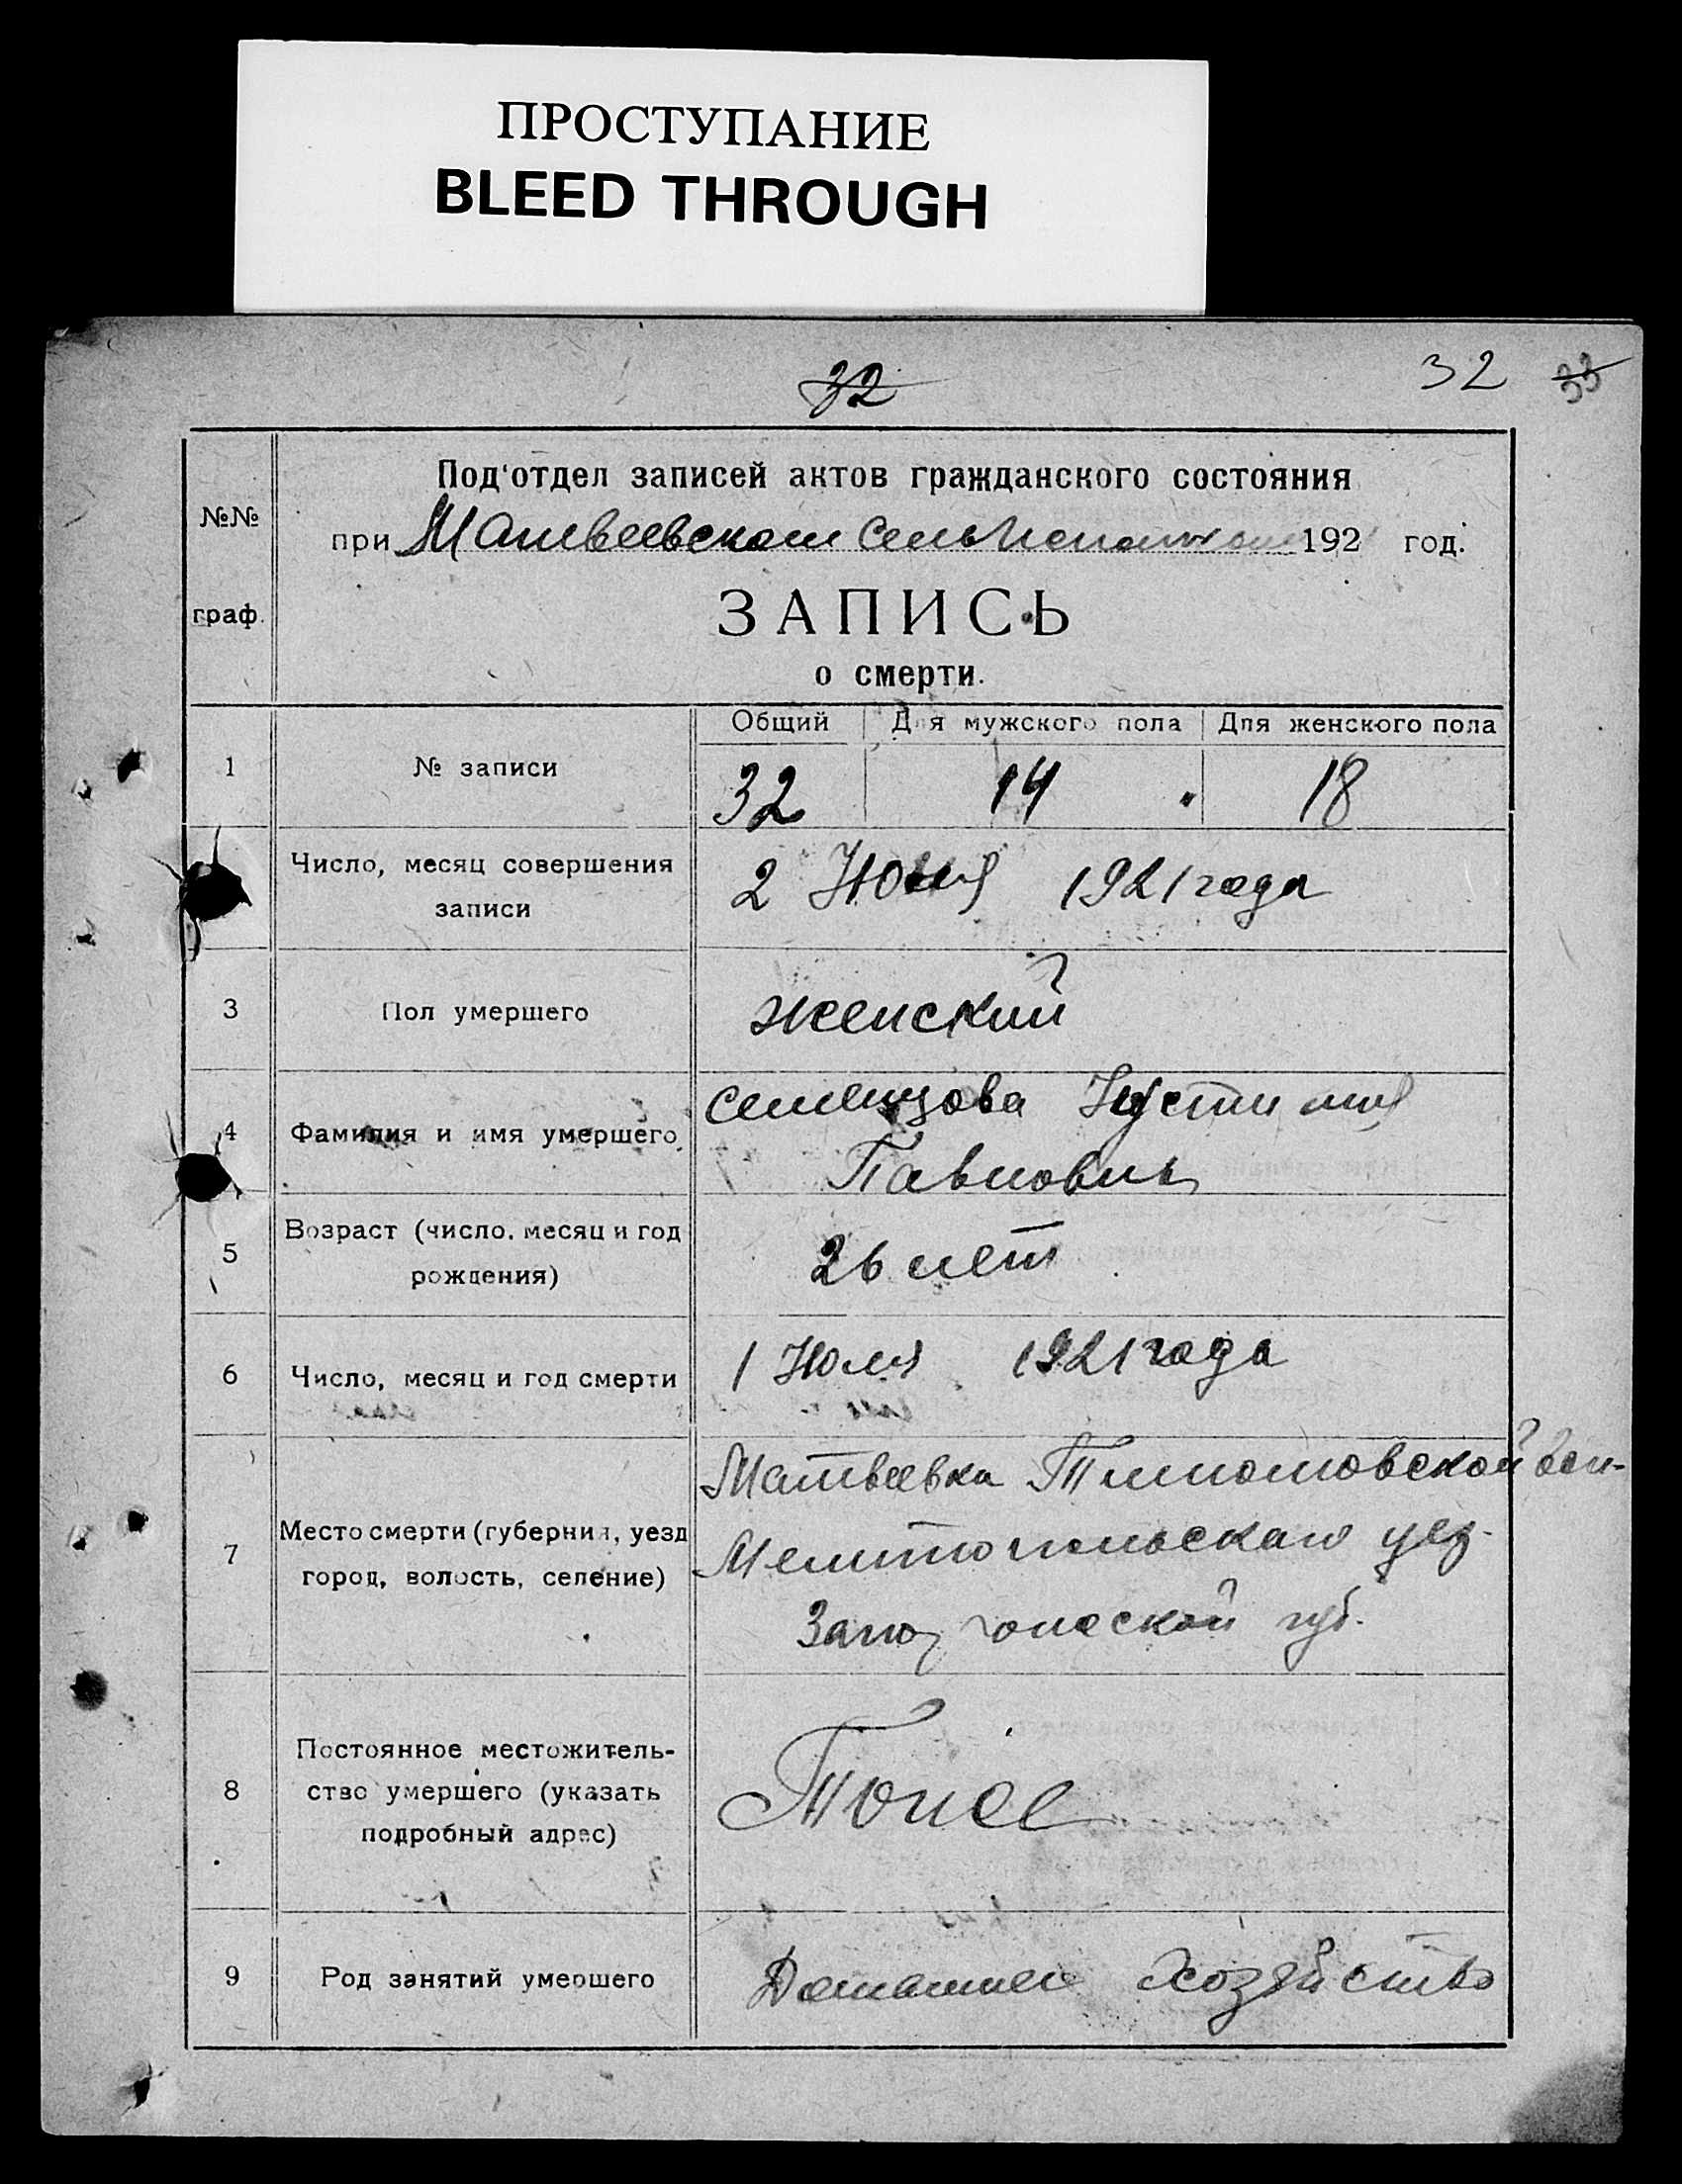 ПРОСТУПАНИЕ
BLEED THROUGH
32
32 33
Под'отдел записей актов гражданского состояния
№№
при Матвеевском Сельисполкоме 192 год.
граф.
ЗАПИСЬ
о смерти.
Общий Для мужского пола Для женского пола
1 № записи 32 14 18
Число, месяц совершения
записи
2 Июля 1921 года
3 Пол умершего женский
4 Фамилия и имя умершего
Семенцова Иустиния
Павловна
Возраст (число, месяц и год
5
рождения)
26 лет
6 Число, месяц и год смерти 1 Июля 1921 года
7
Место смерти (губерния, уезд
город, волость, селение)
Матвеевка Тимошовской вол-
Мелитопольскаго уез-
губ.
8
Постоянное местожитель-
ство умершего (указать
подробный адрес)
Тоже
9 Род занятий умершего Домашнее Хозяйство